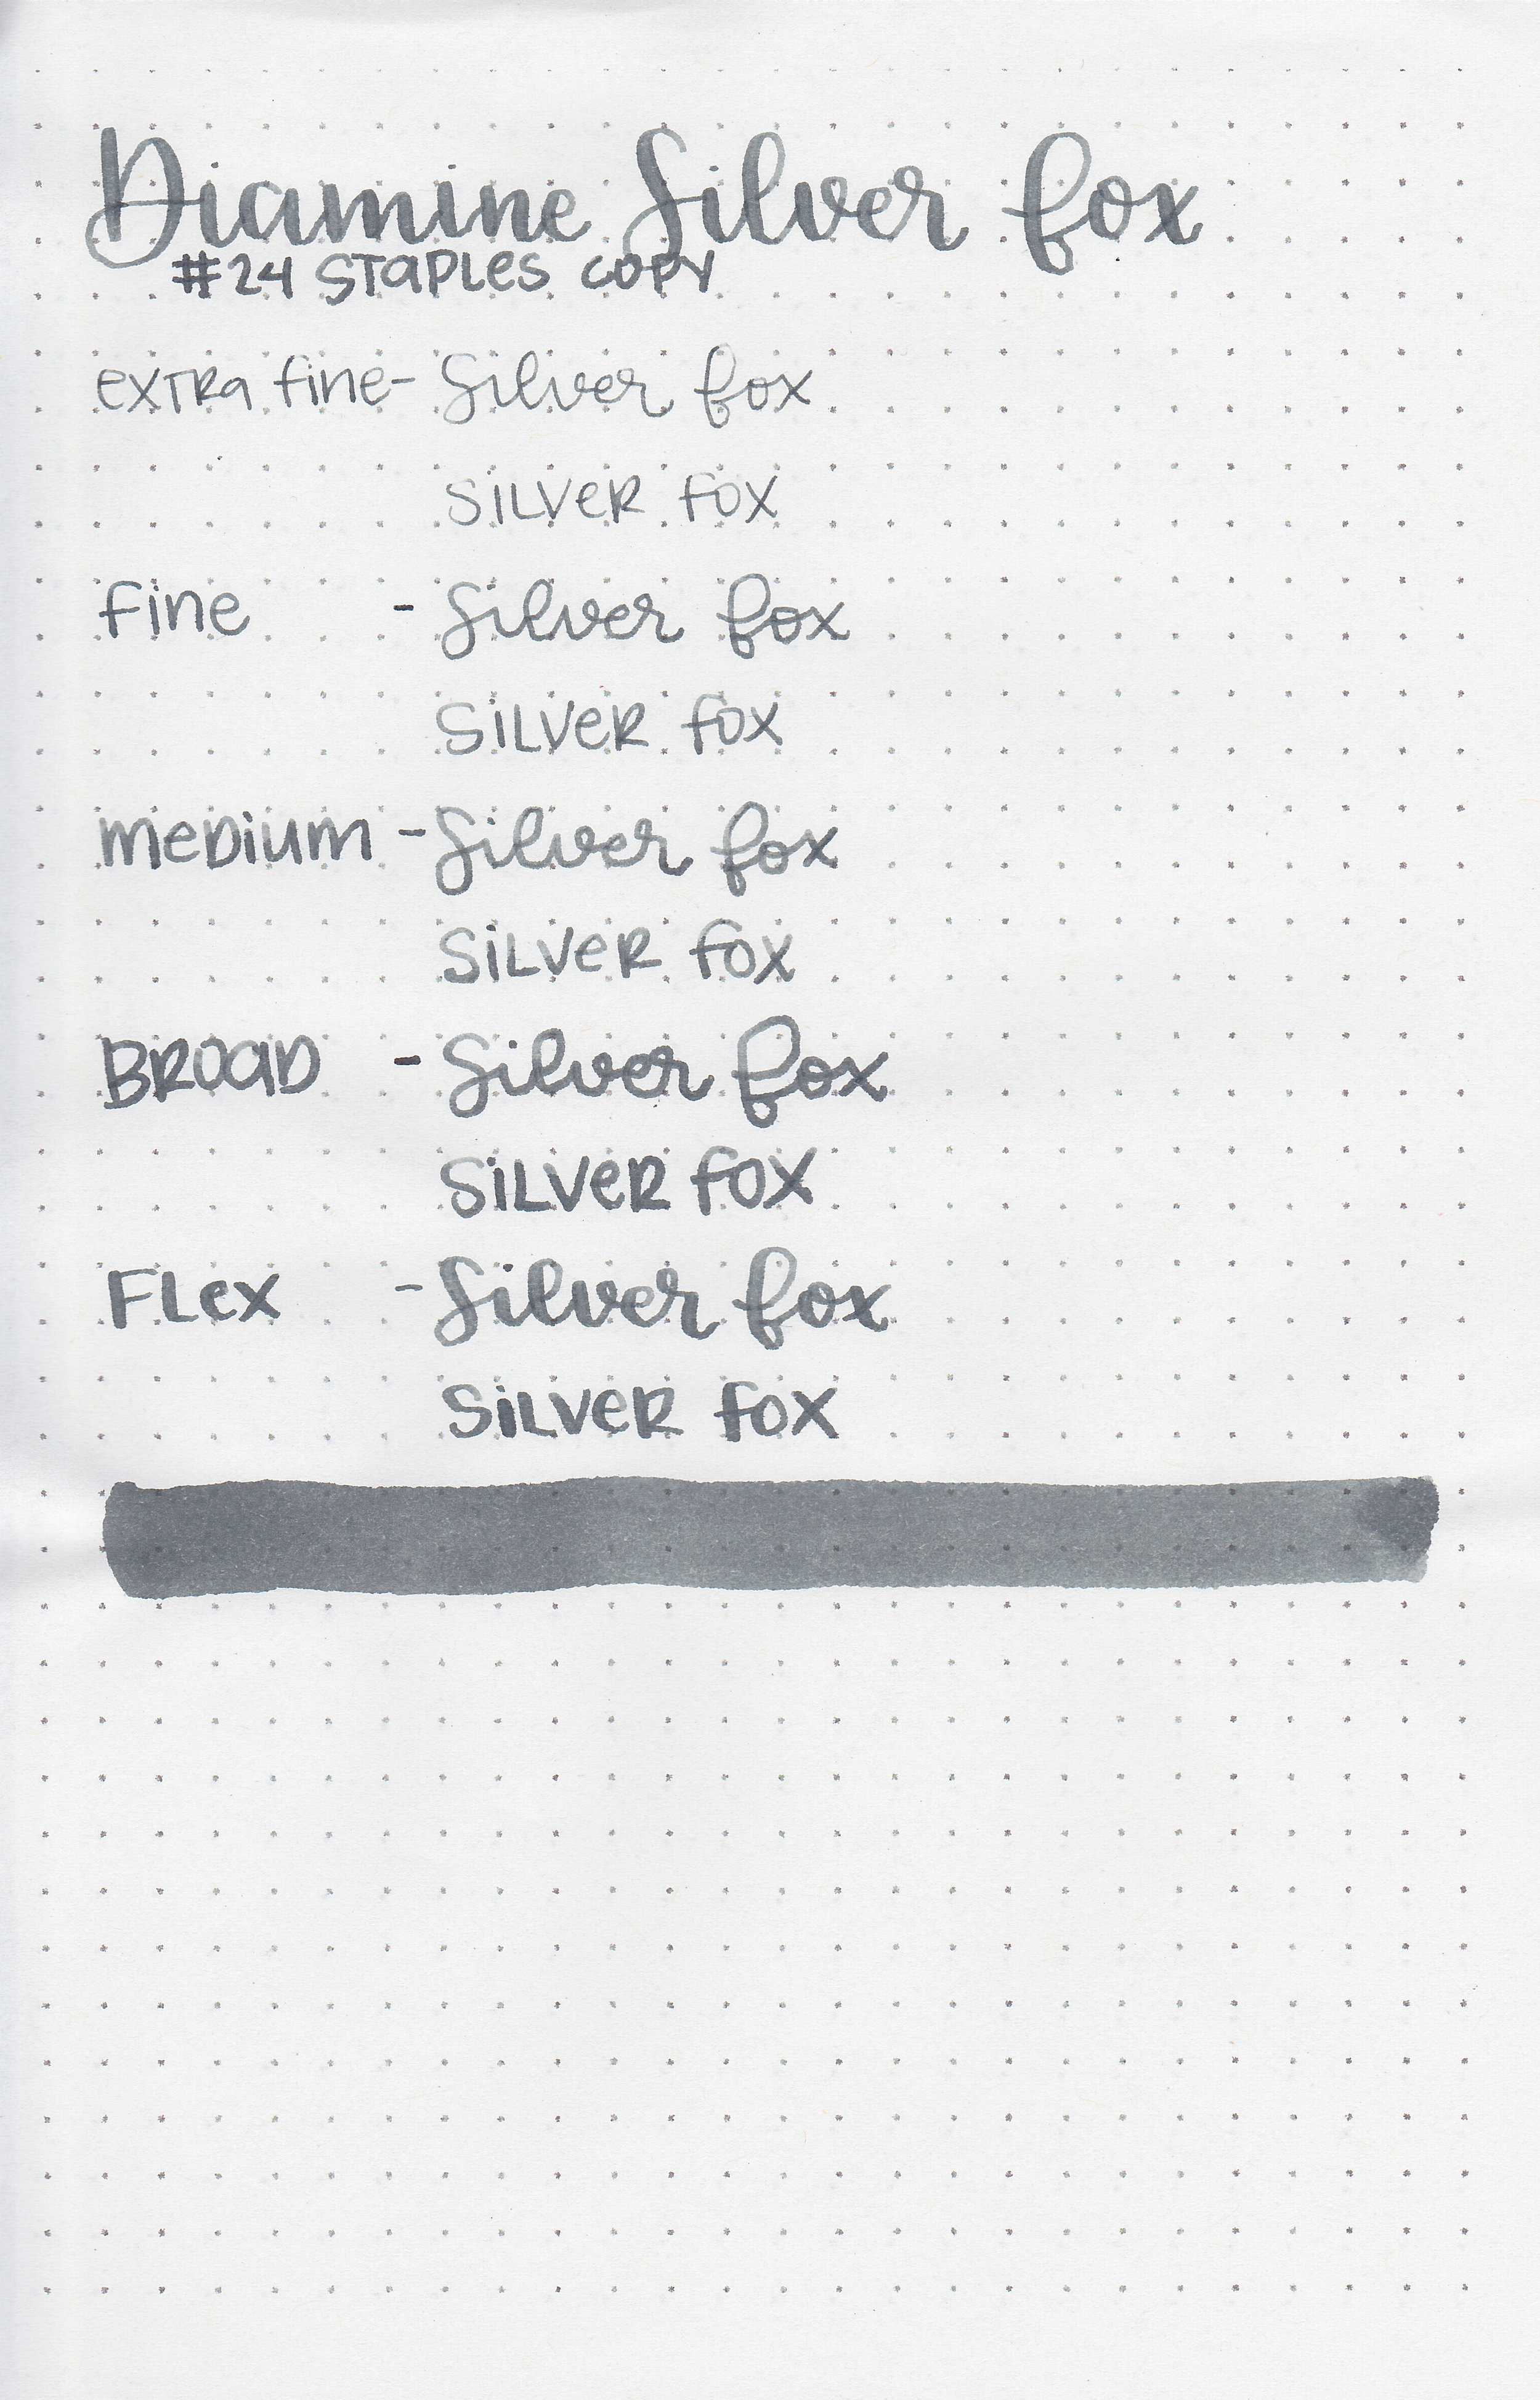 Diamine Silver Fox
#24 Staples copy
extra fine - Silver fox
Silver fox
fine - Silver fox
Silver fox
medium - Silver fox
Silver fox
Broad - Silver fox
Silver fox
Flex - Silver fox
Silver fox